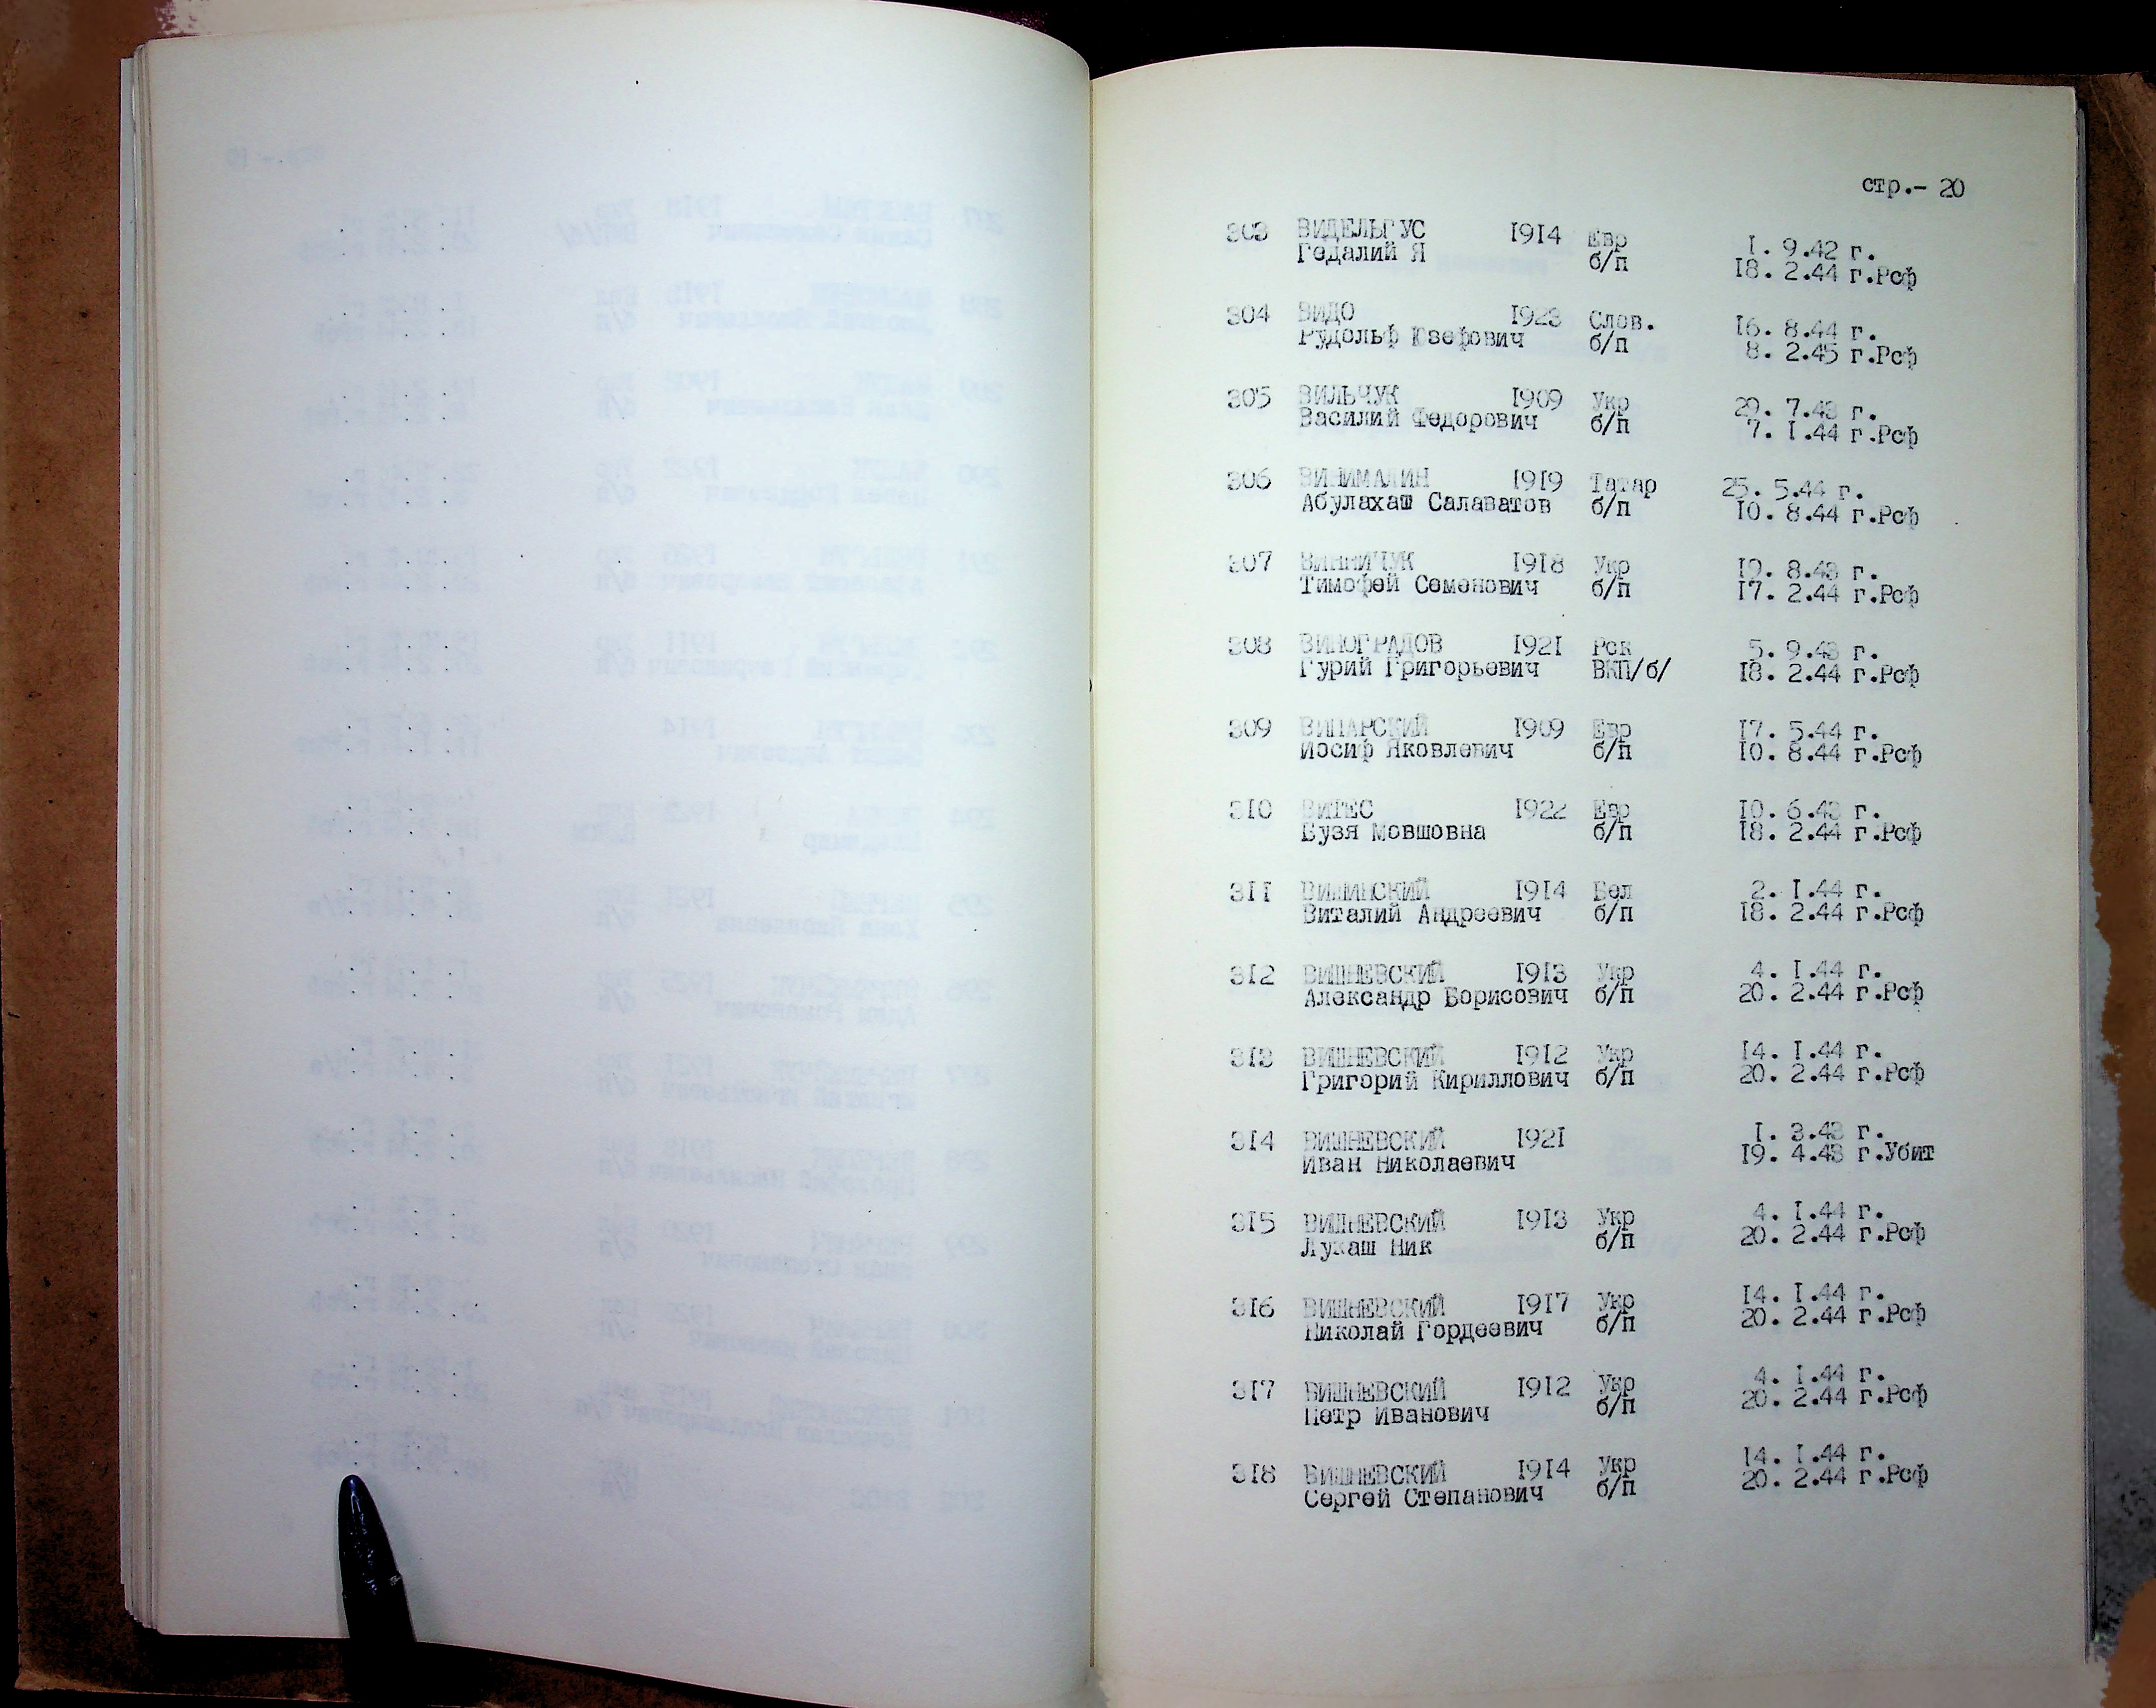 стр.- 20
303 ВИДЕЛЬГУС 1914 Евр 1. 9.42 г.
Гедалий Я б/п 18. 2.44 г.Рсф
304 ВИДО 1923 Слов. 16. 8.44 г.
Рудольф Юзефович б/п 8. 2.45 г.Рсф
305 ВИЛЬЧУК 1909 Укр 29. 7.43 г.
Василий Федорович б/п 7. 1.44 г.Рсф
306 ВИНИМАЛИН 1919 Татар 25. 5.44 г.
Абулахаш Салаватов б/п 10. 8.44 г.Рсф
307 ВИННИЧУК 1918 Укр 19. 8.43 г.
Тимофей Семенович б/п 17. 2.44 г.Рсф
308 ВИНОГРАДОВ 1921 Рск 5. 9.43 г.
Гурий Григорьевич ВКП/б/ 18. 2.44 г.Рсф
309 ВИНАРСКИЙ 1909 Евр 17. 5.44 г.
Иосиф Яковлевич б/п 10. 8.44 г.Рсф
310 ВИТЕС 1922 Евр 10. 6.43 г.
Бузя Мовшовна б/п 18. 2.44 г.Рсф
311 ВИШИНСКИЙ 1914 Бел 2. 1.44 г.
Виталий Андреевич б/п 18. 2.44 г.Рсф
312 ВИШНЕВСКИЙ 1913 Укр 4. 1.44 г.
Александр Борисович б/п 20. 2.44 г.Рсф
313 ВИШНЕВСКИЙ 1912 Укр 14. 1.44 г.
Григорий Кириллович б/п 20. 2.44 г.Рсф
314 ВИШНЕВСКИЙ 1921 1. 3.43 г.
Иван Николаевич 19. 4.43 г.Убит
315 ВИШНЕВСКИЙ 1913 Укр 4. 1.44 г.
Лукаш Ник б/п 20. 2.44 г.Рсф
316 ВИШНЕВСКИЙ 1917 Укр 14. 1.44 г.
Николай Гордеевич б/п 20. 2.44 г.Рсф
317 ВИШНЕВСКИЙ 1912 Укр 4. 1.44 г.
Петр Иванович б/п 20. 2.44 г.Рсф
318 ВИШНЕВСКИЙ 1914 Укр 14. 1.44 г.
Сергей Степанович б/п 20. 2.44 г.Рсф